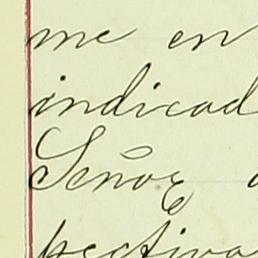 me en
indicad
Señor
pectiva